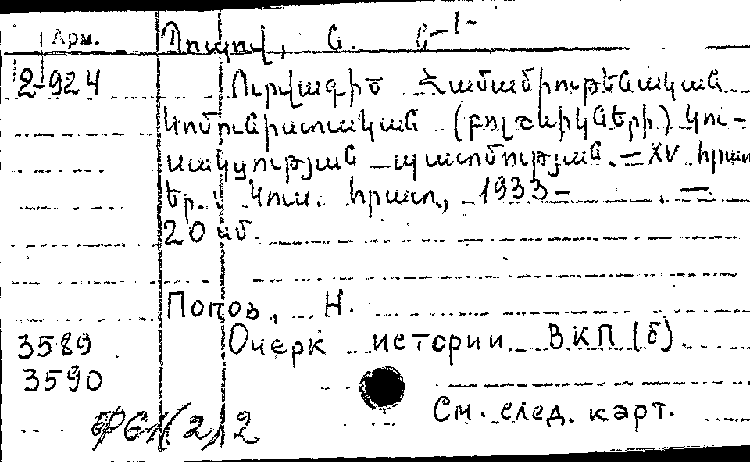 Арм. Պոպով, Ն. Ն-1-
2-924 Ուրվագիծ Համամիութենական
կոմունիստական (բոլշևիկների) կու-
սակցության պատմության. – XV հրատ
Եր., Կուս. հրատ., 1933 –
20 սմ.
Попов, Н.
3589 Очерк истории ВКП(б)
3590
См. след. карт.